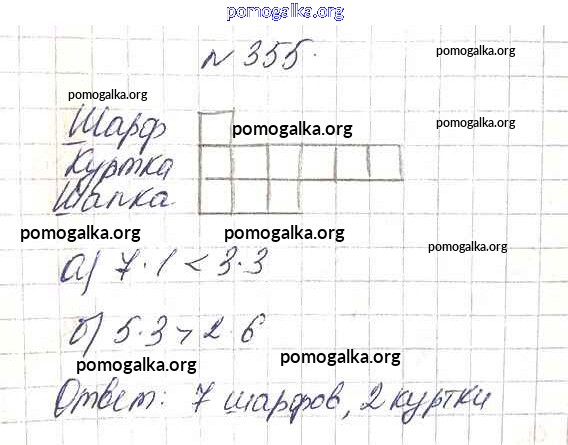 pomogalka.org
N 355.
pomogalka.org
pomogalka.org
Шарф
pomogalka.org
pomogalka.org
Куртка
Шапка
pomogalka.org
pomogalka.org
pomogalka.org
а) 7·1 < 3·3
б) 5·3 > 2·6
pomogalka.org
pomogalka.org
Ответ: 7 шарфов, 2 куртки